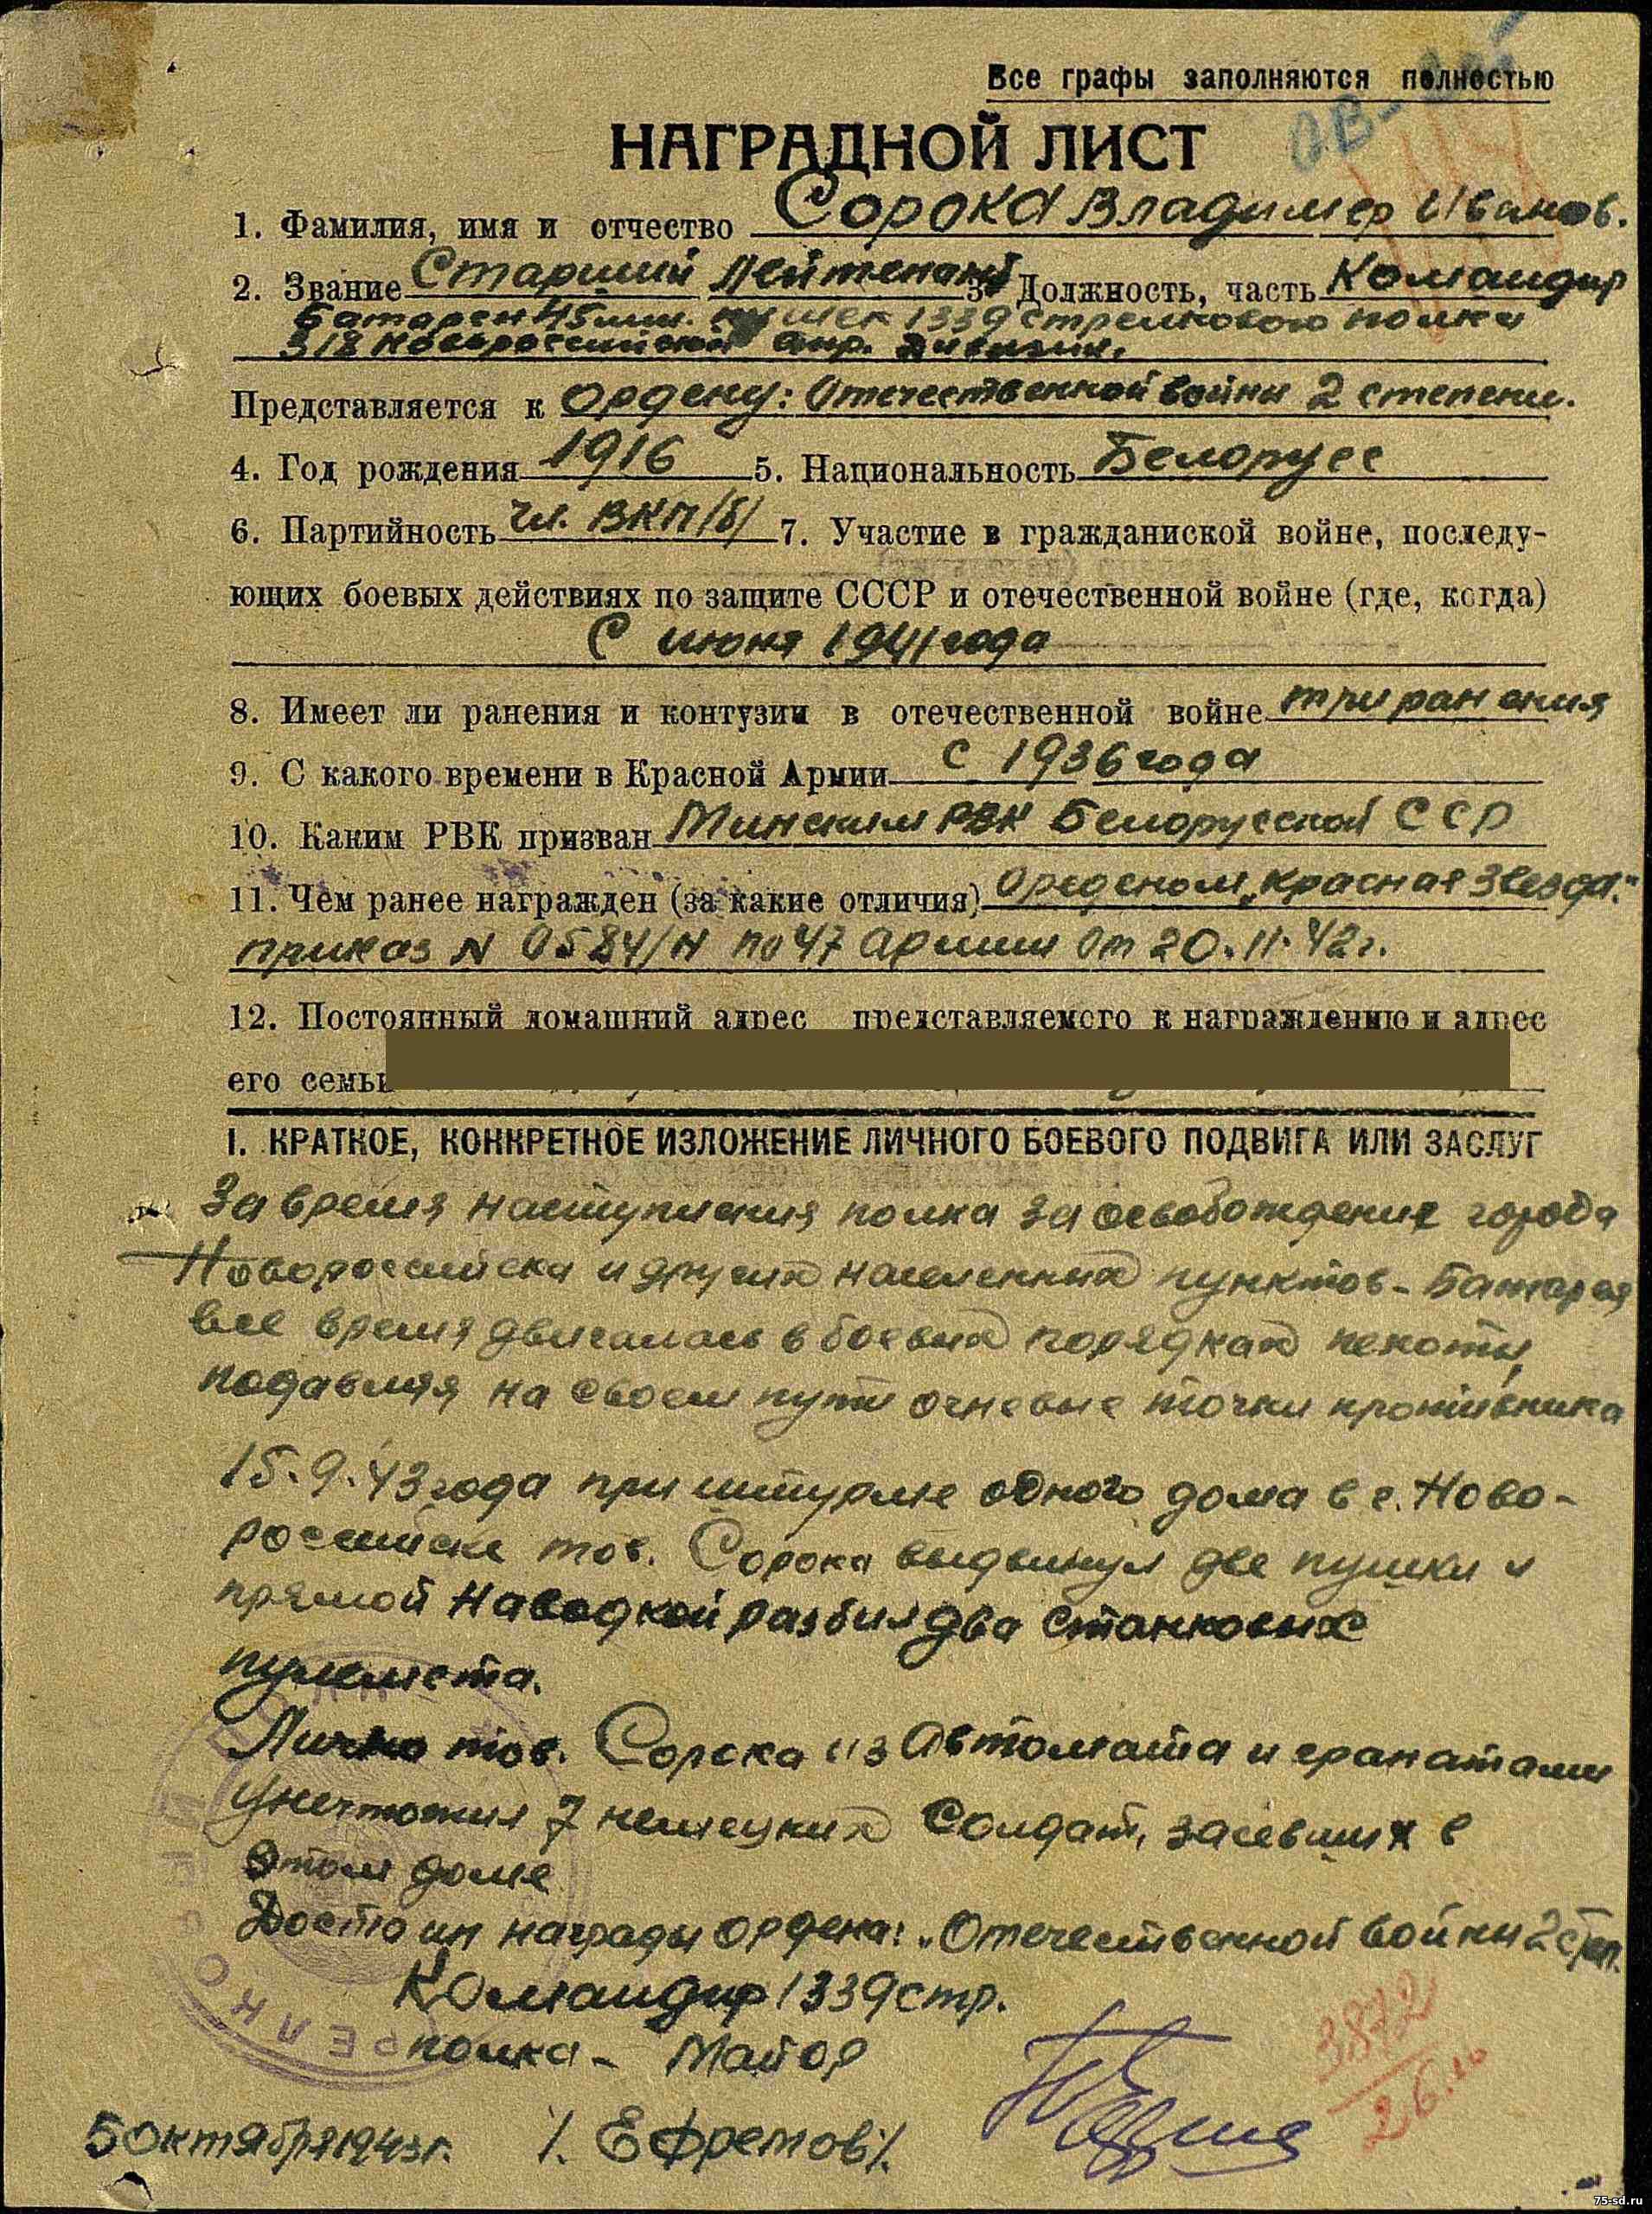 Все графы заполняются полностью
НАГРАДНОЙ ЛИСТ
1. Фамилия, имя и отчество Сорока Владимер Иванов.
2. Звание Старший Лейтенант 3. Должность, часть Командир
Батареи 45 мм. пушек 1339 стрелкового полка
318 Новороссийской стр. дивизии.
Представляется к ордену: Отечественной войны 2 степени.
4. Год рождения 1916 5. Национальность Белорусс
6. Партийность чл. ВКП/б/ 7. Участие в гражданиской войне, последу-
ющих боевых действиях по защите СССР и отечественной войне (где, когда)
С июня 1941 года
8. Имеет ли ранения и контузии в отечественной войне три ранения
9. С какого времени в Красной Армии с 1936 года
10. Каким РВК призван Минским РВК Белорусской ССР
11. Чем ранее награжден (за какие отличия) Орденом „Красная Звезда."
приказ N 0584/Н по 47 Армии от 20.11.42г.
12. Постоянный домашний адрес представляемого к награждению и адрес
его семьи
I. КРАТКОЕ, КОНКРЕТНОЕ ИЗЛОЖЕНИЕ ЛИЧНОГО БОЕВОГО ПОДВИГА ИЛИ ЗАСЛУГ
За время наступления полка за освобождение города
Новороссийска и других населенных пунктов - Батарея
все время двигалась в боевых порядках пехоты,
подавляя на своем пути огневые точки противника
15.9.43 года при штурме одного дома в г. Ново-
россииске тов. Сорока выдвинул две пушки и
прямой наводкой разбил два станковых
пулемета.
Лично тов. Сорока из Автомата и гранатами
уничтожил 7 немецких солдат, засевших в
этом доме
Достоин награды ордена: „Отечественной войны 2 степ.
Командир 1339 стр.
полка - Майор
5 октября 1943г. /. Ефремов/.
3872
26.10
75-sd.ru